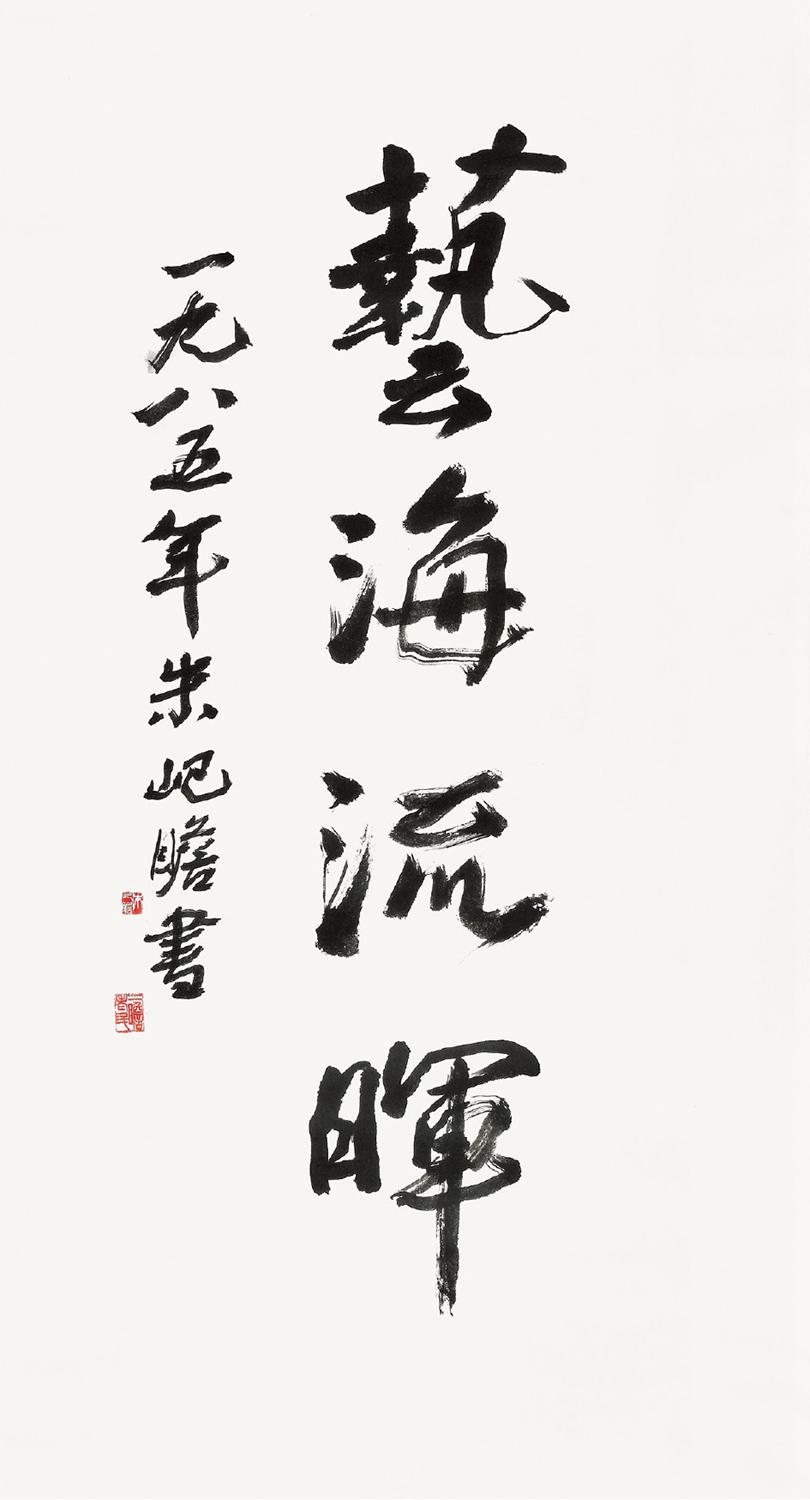 藝海流暉
一九八五年朱屺瞻書